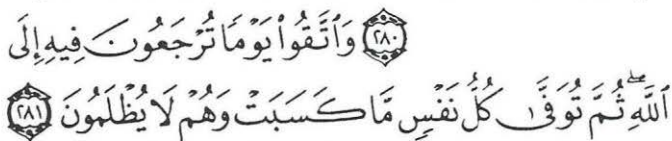 ﴿٢٨٠﴾ وَٱتَّقُوا۟ يَوْمًا تُرْجَعُونَ فِيهِ إِلَى
ٱللَّهِ ۖ ثُمَّ تُوَفَّىٰ كُلُّ نَفْسٍ مَّا كَسَبَتْ وَهُمْ لَا يُظْلَمُونَ ﴿٢٨١﴾